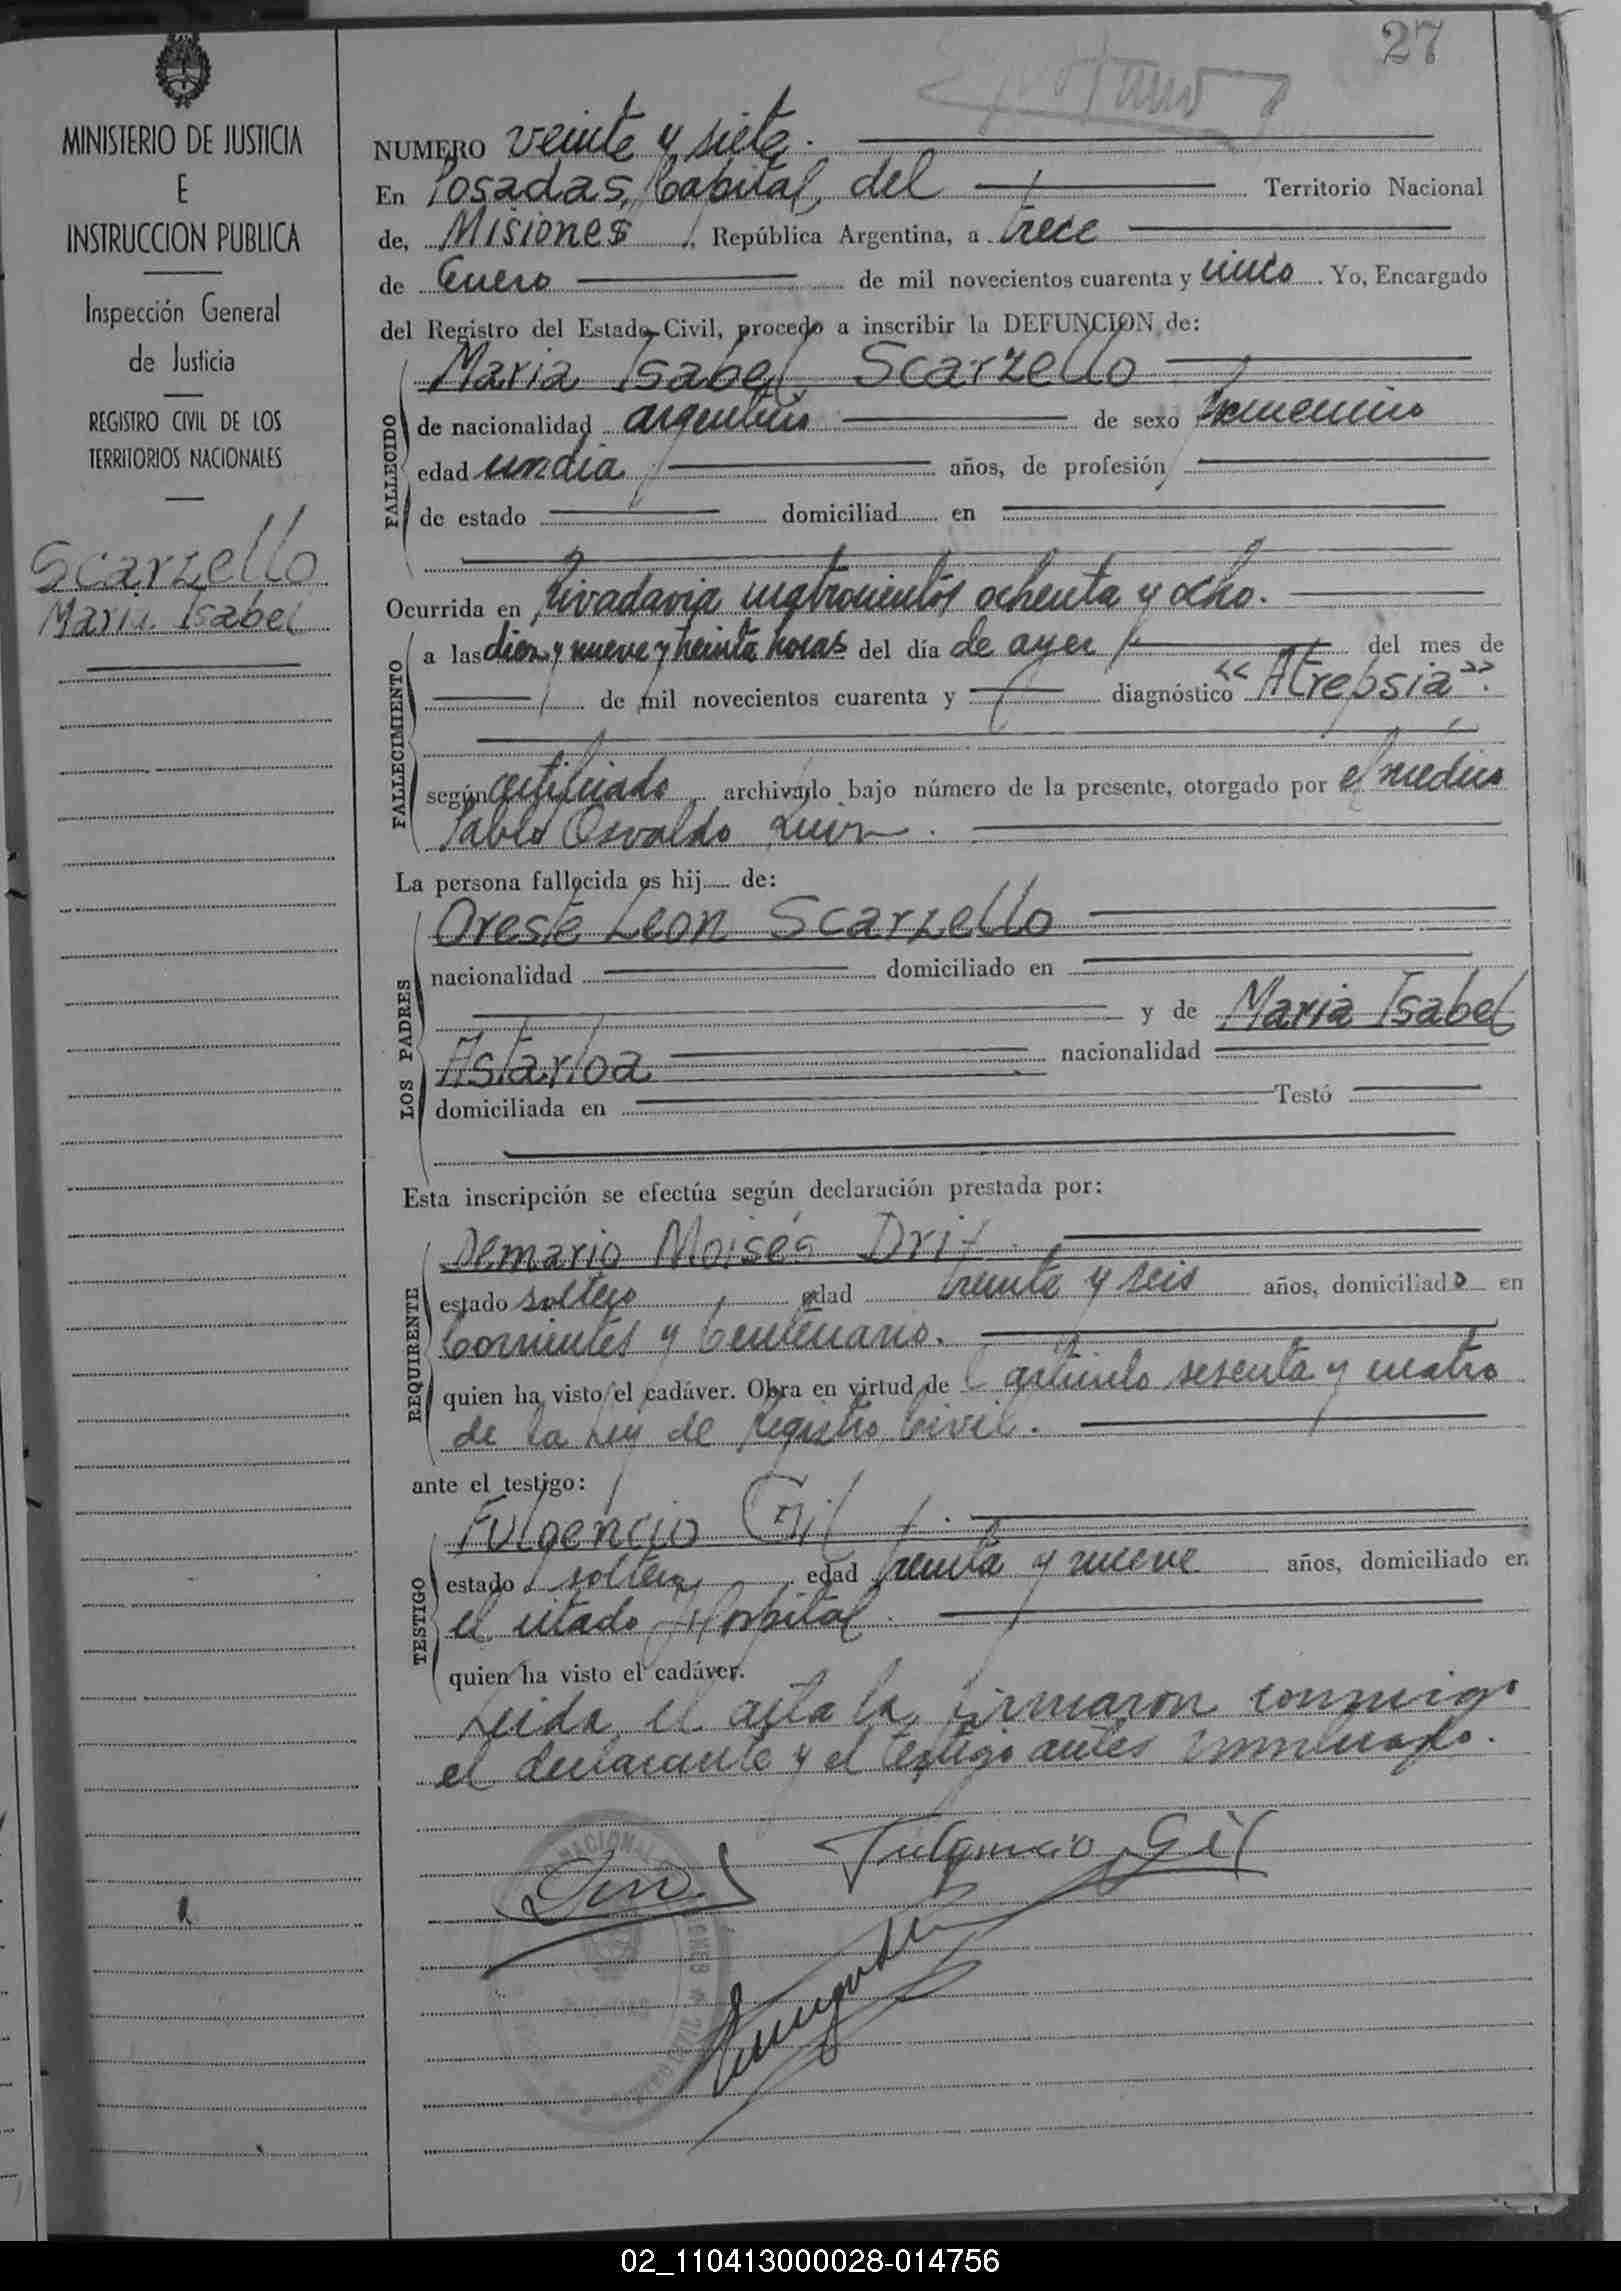 27
MINISTERIO DE JUSTICIA
E
INSTRUCCION PUBLICA
Inspección General
de Justicia
REGISTRO CIVIL DE LOS
TERRITORIOS NACIONALES
Scarzello
Maria Isabel
NUMERO veinte y siete.
En Posadas, Capital, del Territorio Nacional
de, Misiones, República Argentina, a trece
de Enero de mil novecientos cuarenta y cinco. Yo, Encargado
del Registro del Estado Civil, procedo a inscribir la DEFUNCION de:
FALLECIDO
Maria Isabel Scarzello
de nacionalidad argentina de sexo femenino
edad un dia años, de profesión
de estado domiciliad en
Ocurrida en Rivadavia cuatrocientos ochenta y ocho.
FALLECIMIENTO
a las diez y nueve y treinta horas del día de ayer del mes de
de mil novecientos cuarenta y diagnóstico "Atrepsia".
según certificado archivado bajo número de la presente, otorgado por el médico
Pablo Osvaldo
La persona fallecida es hij de:
LOS PADRES
Oreste Leon Scarzello
nacionalidad domiciliado en
y de Maria Isabel
Astarloa nacionalidad
domiciliada en Testó
Esta inscripción se efectúa según declaración prestada por:
REQUIRENTE
Demario Moisés Dri
estado soltero edad treinta y seis años, domiciliado en
Corrientes y Centenario.
quien ha visto el cadáver. Obra en virtud de l artículo sesenta y cuatro
de la Ley de Registro Civil.
ante el testigo:
TESTIGO
Fulgencio Gil
estado soltero edad treinta y nueve años, domiciliado en
el citado Hospital.
quien ha visto el cadáver.
Leida el acta la firmaron conmigo
el declarante y el testigo antes nombrado.
Fulgencio Gil
02_110413000028-014756